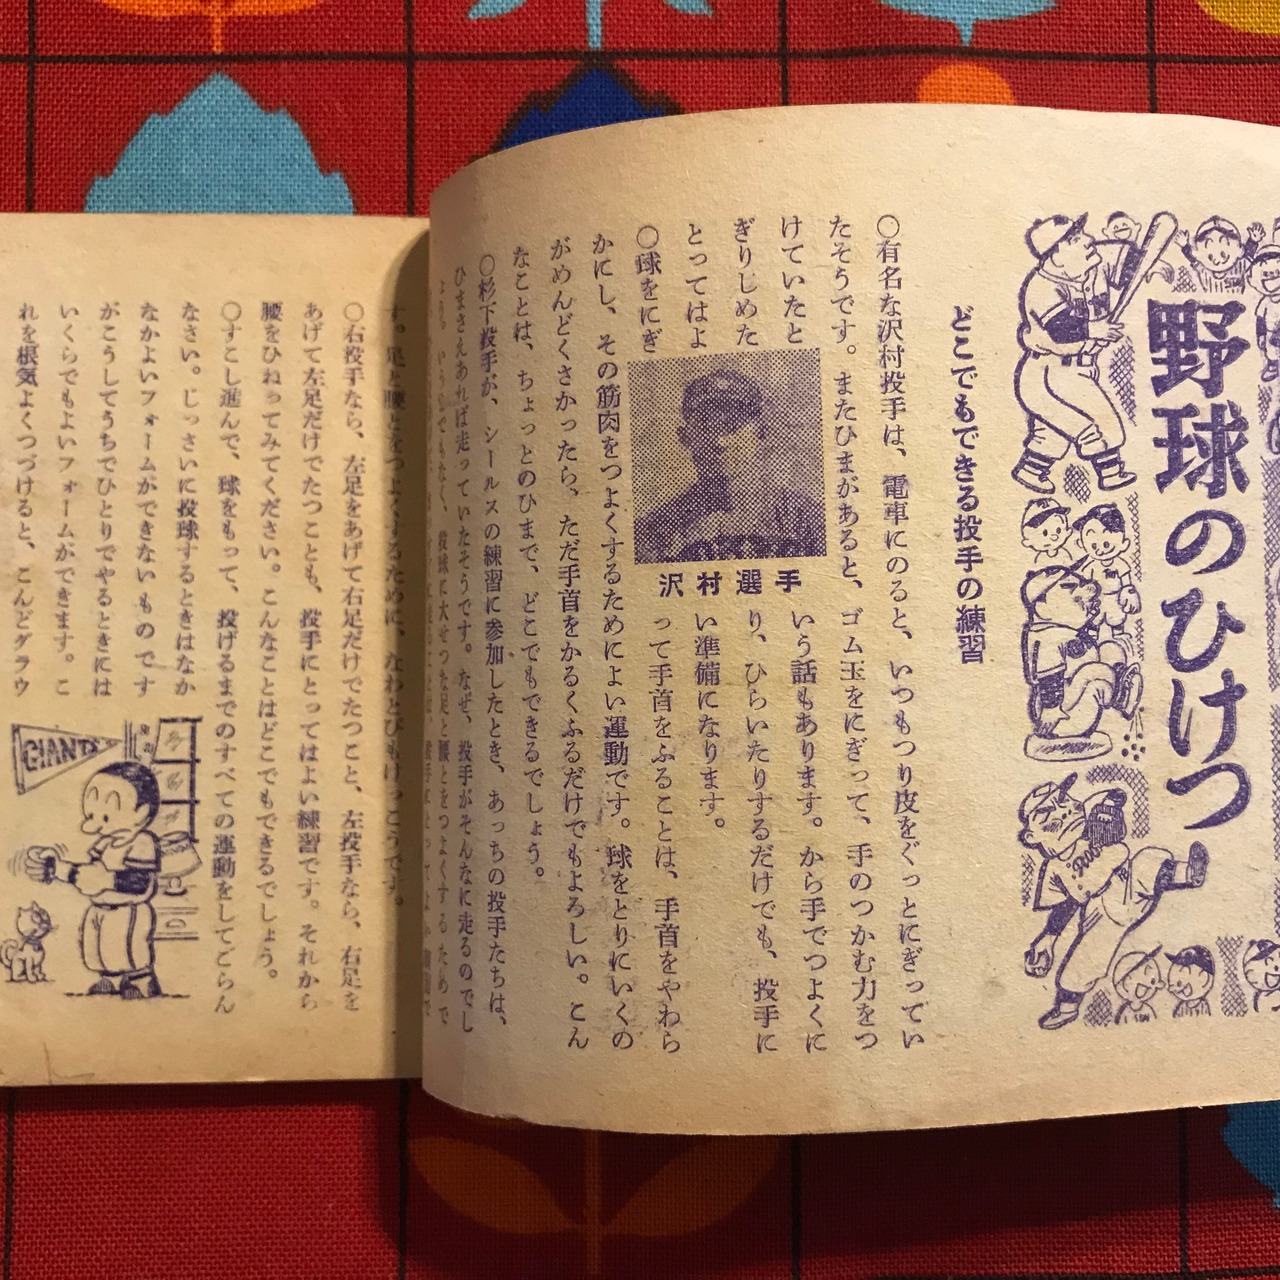 野球のひけつ
どこでもできる投手の練習
○有名な沢村投手は、電車にのると、いつもつり皮をぐっとにぎってい
たそうです。またひまがあると、ゴム玉をにぎって、手のつかむ力をつ
けていたと
いう話もあります。から手でつよくに
ぎりしめた
り、ひらいたりするだけでも、投手に
とってはよ
い準備になります。
○球をにぎ
って手首をふることは、手首をやわら
沢村選手
かにし、その筋肉をつよくするためによい運動です。球をとりにいくの
がめんどくさかったら、ただ手首をかるくふるだけでもよろしい。こん
なことは、ちょっとのひまで、どこでもできるでしょう。
○杉下投手が、シールスの練習に参加したとき、あっちの投手たちは、
ひまさえあれば走っていたそうです。なぜ、投手がそんなに走るのでし
ょう。いうまでもなく、投球に大せつな足と腰とをつよくするためで
す。足と腰とをつよくするために、なわとびもけっこうです。
○右投手なら、左足をあげて右足だけでたつこと、左投手なら、右足を
あげて左足だけでたつことも、投手にとってはよい練習です。それから
腰をひねってみてください。こんなことはどこでもできるでしょう。
○すこし進んで、球をもって、投げるまでのすべての運動をしてごらん
なさい。じっさいに投球するときはなか
なかよいフォームができないものです
がこうしてうちでひとりでやるときには
いくらでもよいフォームができます。こ
れを根気よくつづけると、こんどダラウ
GIANTS